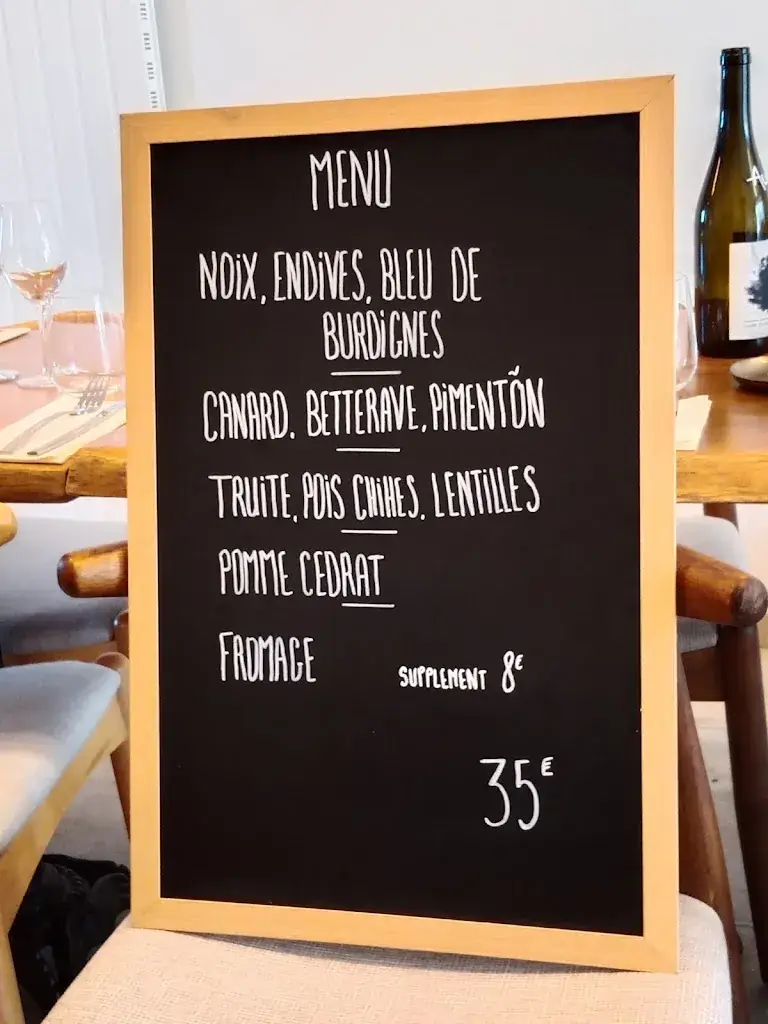 MENU
NOIX, ENDIVES, BLEU DE
BURDIGNES
CANARD, BETTERAVE, PIMENTÕN
TRUITE, POIS CHIHES, LENTILLES
POMME CEDRAT
FROMAGE SUPPLEMENT 8€
35€